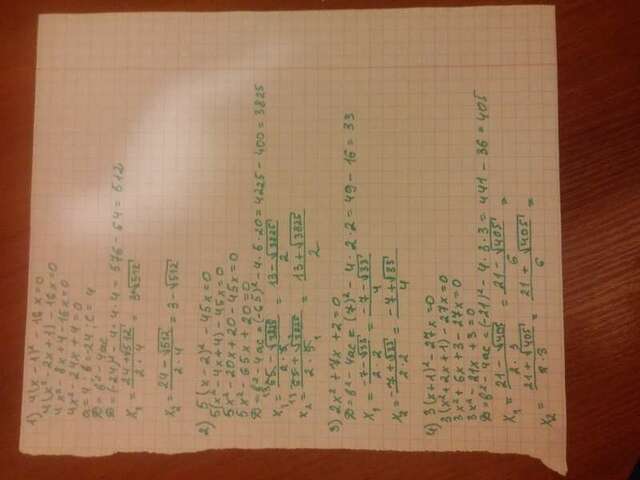 1) 4(x-1)² - 16x=0
4(x²-2x+1)-16x=0
4x²-8x+4-16x=0
4x²-24x+4=0
a=4; b=-24; c=4
D=b²-4ac
D=(-24)²-4·4·4=576-64=512
x₁ = (24+√512)/(2·4) = 3+√512
x₂ = (24-√512)/(2·4) = 3-√512
2) 5(x-2)² - 45x=0
5(x²-4x+4)-45x=0
5x²-20x+20-45x=0
5x²-65x+20=0
D=b²-4ac=(-65)²-4·5·20=4225-400=3825
x₁ = (65-√3825)/(2·5) = (13-√3825)/2
x₂ = (65+√3825)/(2·5) = (13+√3825)/2
3) 2x²+7x+2=0
D=b²-4ac=(7)²-4·2·2=49-16=33
x₁ = (-7-√33)/(2·2) = (-7-√33)/4
x₂ = (-7+√33)/(2·2) = (-7+√33)/4
4) 3(x+1)²-27x=0
3(x²+2x+1)-27x=0
3x²+6x+3-27x=0
3x²-21x+3=0
D=b²-4ac=(-21)²-4·3·3=441-36=405
x₁ = (21-√405)/(2·3) = (21-√405)/6 =
x₂ = (21+√405)/(2·3) = (21+√405)/6 =